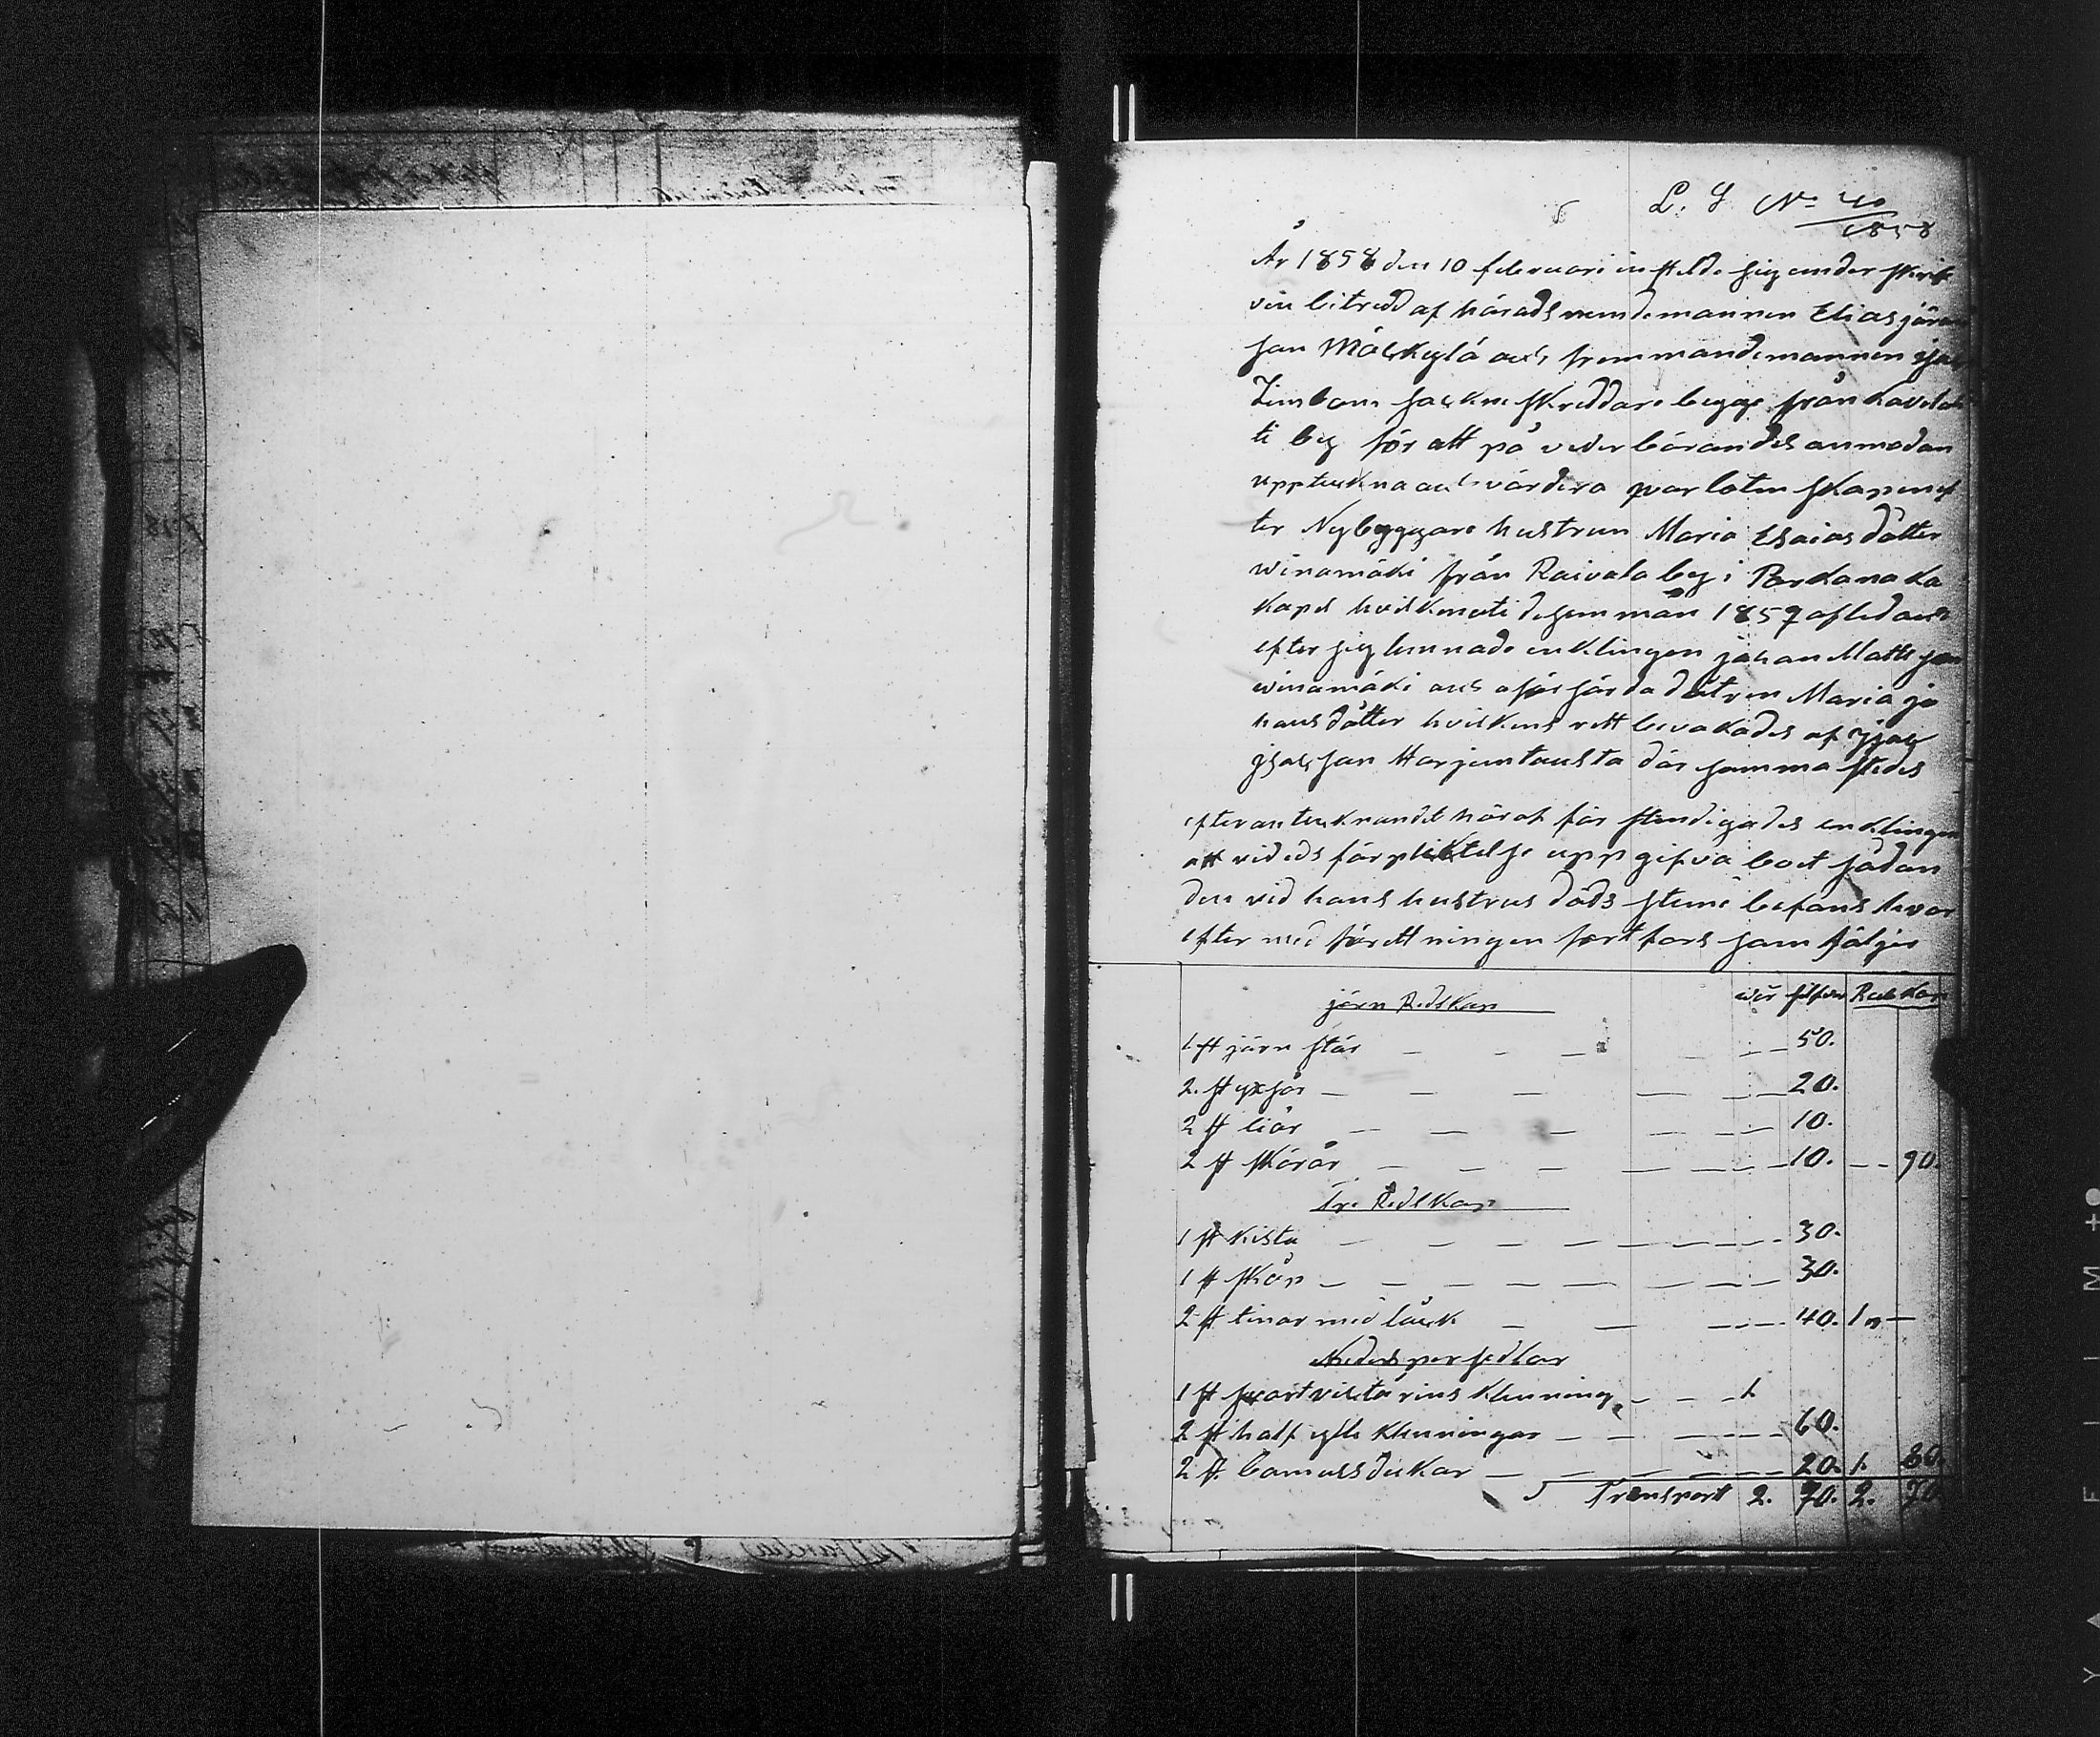 L. S No 40
1858
År 1858 den 10 februari instelde sig under skrif
ven biträdd af härads nemdemannen Elias jöran
son Mäckylä och fremmandemannen
Limbom socknskreddare begge från Kavelah
ti by för att på vederbörandes anmodan
uppteckna och värdera qvarlåtenskapen ef
ter Nybyggare hustrun Maria Esaias dotter
winamäki från Raivala by i Parkano ka
kapel hvilken uti desem mån 1857 afled och
efter sig lemnade enklingen johan Matts son
winamäki och oförsörda dotren Maria jo
hans dotter hvilkens rett bevakades af
jsacsson Harjuntausta där samma stedes
efter antecknandet häraf för stendigades enklingen
att vid eds förpliktelse uppgifva boet sådan
den vid hans hustrus döds steme befans hvar
efter med förettningen fortfors som följer
järn Redskap silfver Rub Kop
1 st järn stör 50.
2. st yxsor 20.
2 st liör 10.
2 st skärör 10. 90.
Tre Redskap
1 st kista 30.
1 st skåp 30.
2 st tinor med låck 40. 1 —
persedlar
1 st svart klenning 1.
2 st half ylle klenningar 60.
2 st. bomulls dukar 20. 1. 80.
Transport 2. 70. 2. 70